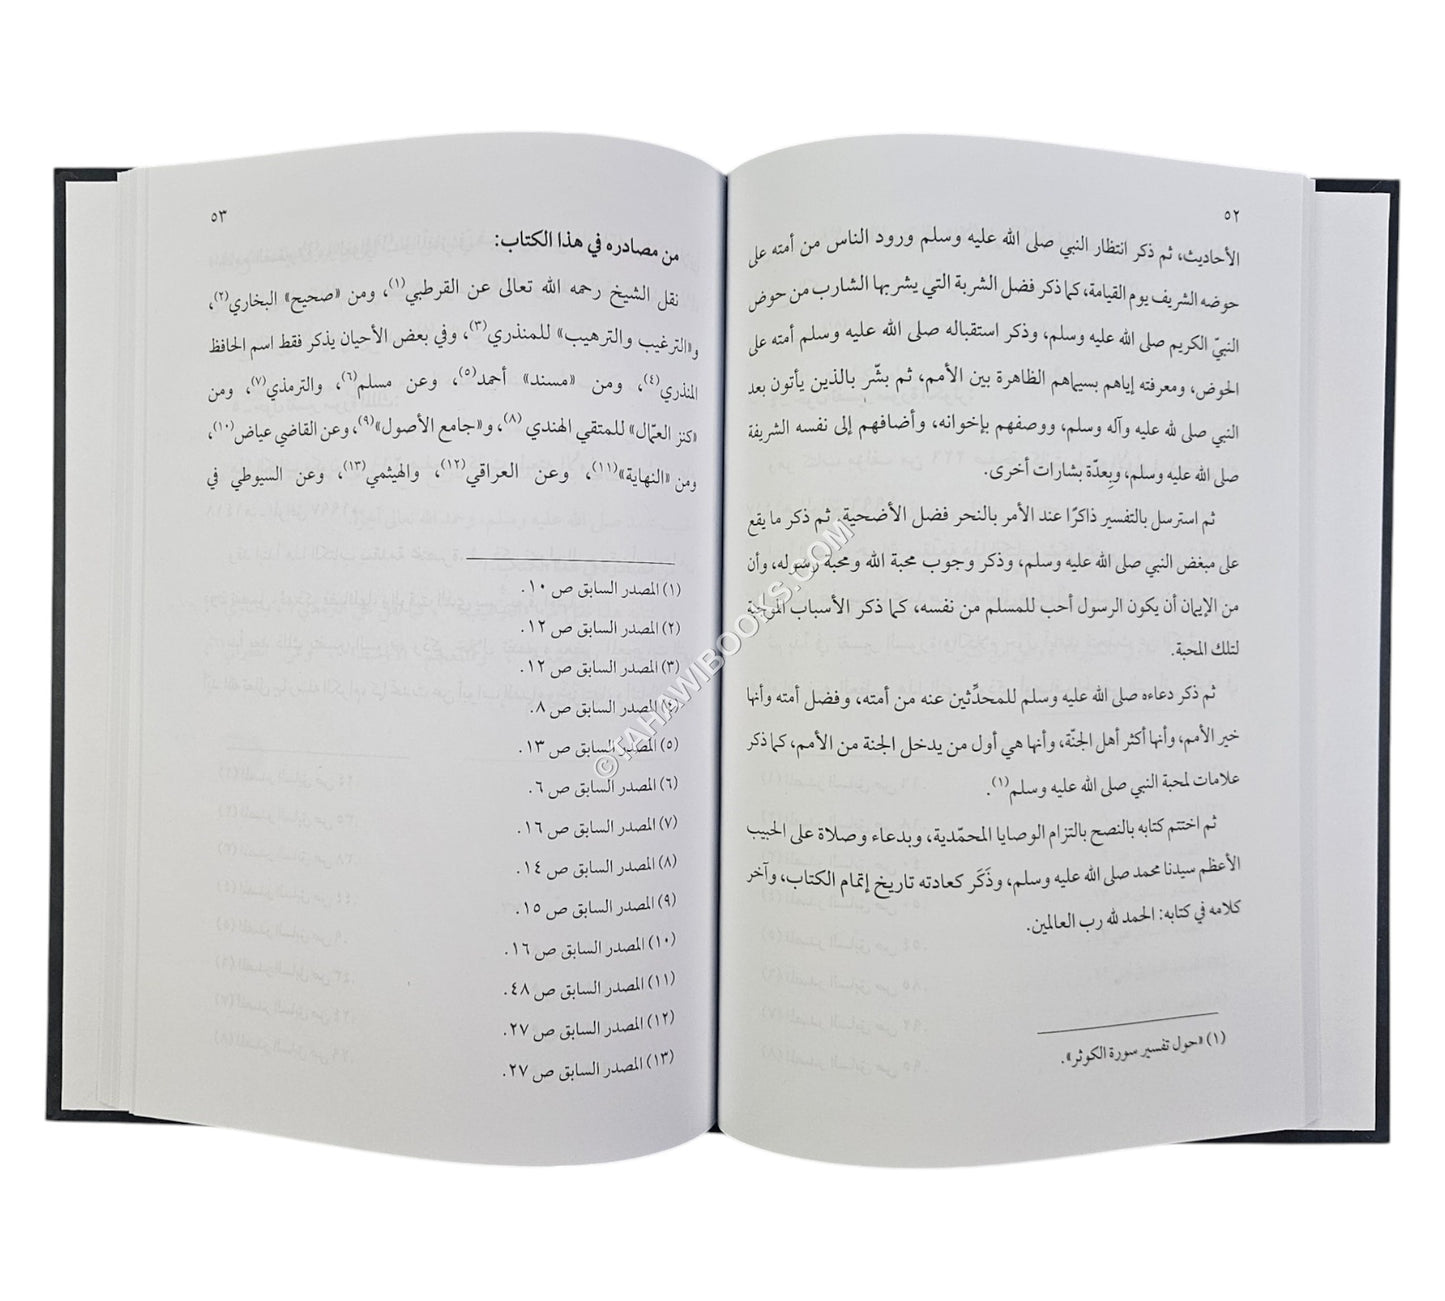 ٥٢
الأحاديث، ثم ذكر انتظار النبي صلى الله عليه وسلم ورود الناس من أمته على
حوضه الشريف يوم القيامة، كما ذكر فضل الشربة التي يشربها الشارب من حوض
النبيّ الكريم صلى الله عليه وسلم، وذكر استقباله صلى الله عليه وسلم أمته على
الحوض، ومعرفته إياهم بسيماهم الظاهرة بين الأمم، ثم بشّر بالذين يأتون بعد
النبي صلى لله عليه وآله وسلم، ووصفهم بإخوانه، وأضافهم إلى نفسه الشريفة
صلى الله عليه وسلم، وبِعدّة بشارات أخرى.
ثم استرسل بالتفسير ذاكرًا عند الأمر بالنحر فضل الأضحية. ثم ذكر ما يقع
على مبغض النبي صلى الله عليه وسلم، وذكر وجوب محبة الله ومحبة رسوله، وأن
من الإيمان أن يكون الرسول أحب للمسلم من نفسه، كما ذكر الأسباب الموجبة
لتلك المحبة.
ثم ذكر دعاءه صلى الله عليه وسلم للمحدِّثين عنه من أمته، وفضل أمته وأنها
خير الأمم، وأنها أكثر أهل الجنّة، وأنها هي أول من يدخل الجنة من الأمم، كما ذكر
علامات لمحبة النبي صلى الله عليه وسلم(١).
ثم اختتم كتابه بالنصح بالتزام الوصايا المحمّدية، وبدعاء وصلاة على الحبيب
الأعظم سيدنا محمد صلى الله عليه وسلم، وذَكَر كعادته تاريخ إتمام الكتاب، وآخر
كلامه في كتابه: الحمد لله رب العالمين.
(١) «حول تفسير سورة الكوثر».
٥٣
من مصادره في هذا الكتاب:
نقل الشيخ رحمه الله تعالى عن القرطبي(١)، ومن «صحيح» البخاري(٢)،
و«الترغيب والترهيب» للمنذري(٣)، وفي بعض الأحيان يذكر فقط اسم الحافظ
المنذري(٤)، ومن «مسند» أحمد(٥)، وعن مسلم(٦)، والترمذي(٧)، ومن
«كنز العمّال» للمتقي الهندي(٨)، و«جامع الأصول»(٩)، وعن القاضي عياض(١٠)،
ومن «النهاية»(١١)، وعن العراقي(١٢)، والهيثمي(١٣)، وعن السيوطي في
(١) المصدر السابق ص ١٠.
(٢) المصدر السابق ص ١٢.
(٣) المصدر السابق ص ١٢.
(٤) المصدر السابق ص ٨.
(٥) المصدر السابق ص ١٣.
(٦) المصدر السابق ص ٦.
(٧) المصدر السابق ص ١٦.
(٨) المصدر السابق ص ١٤.
(٩) المصدر السابق ص ١٥.
(١٠) المصدر السابق ص ١٦.
(١١) المصدر السابق ص ٤٨.
(١٢) المصدر السابق ص ٢٧.
(١٣) المصدر السابق ص ٢٧.
©TAHAWIBOOKS.COM